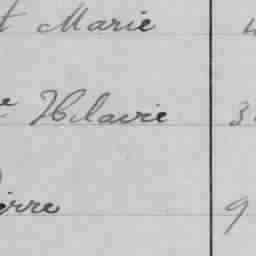 t Marie 4
e Hilarie 3
ierre 9